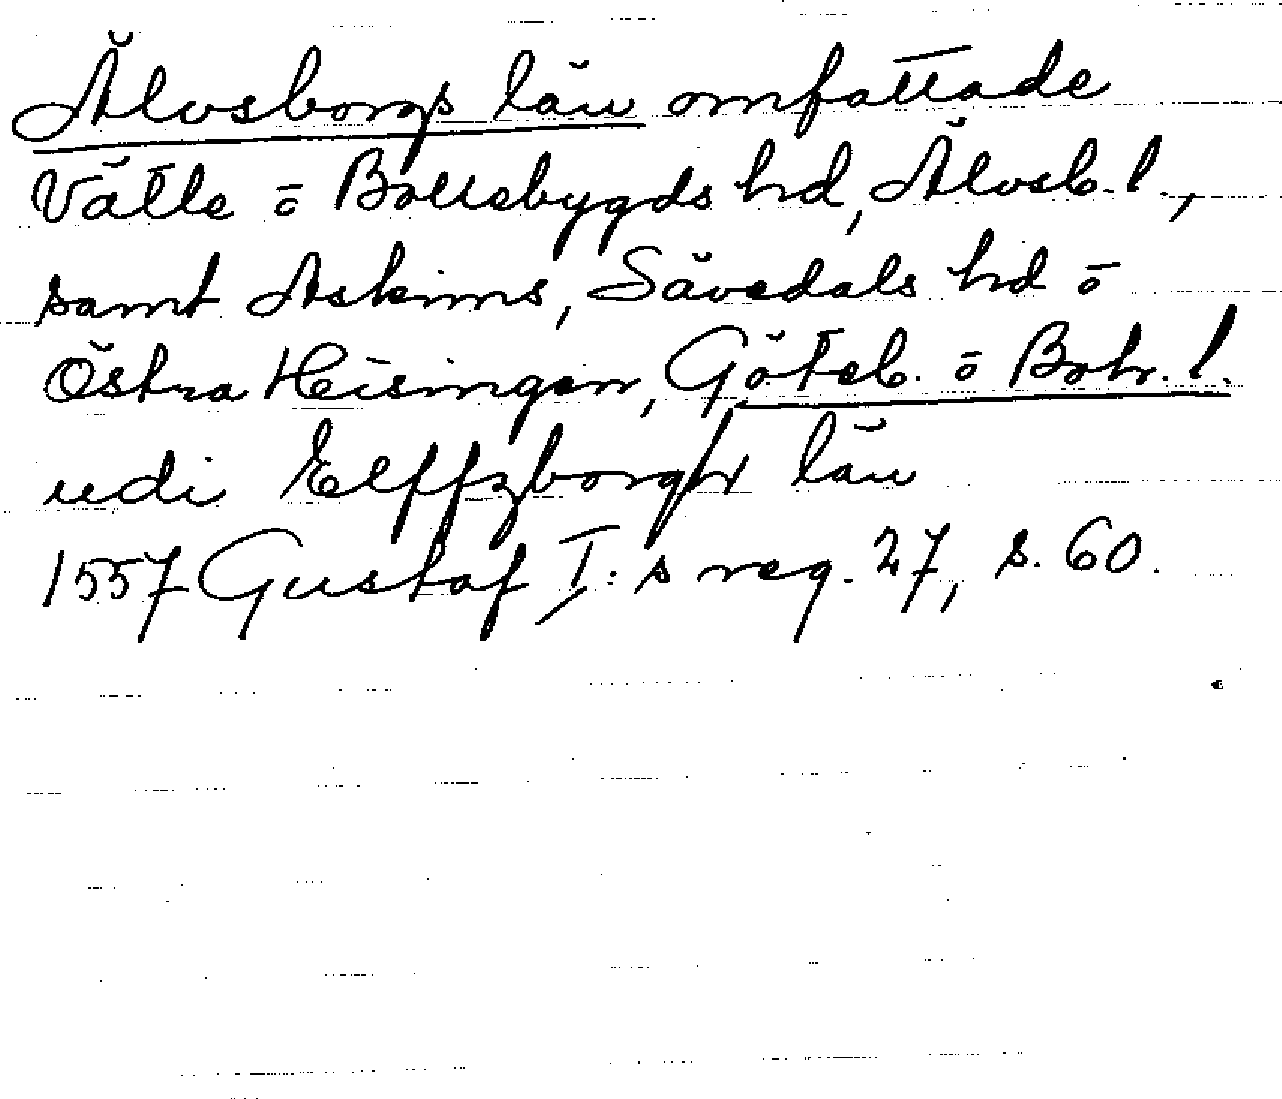 Älvsborgs län omfattade
Vättle o Bollebygds hd, Älvsb. l.,
samt Askims, Sävedals hd o
Östra Hisingen, Göteb. o Boh. l.
udi Elffzborgh län
1557 Gustaf I:s reg. 27, s. 60.